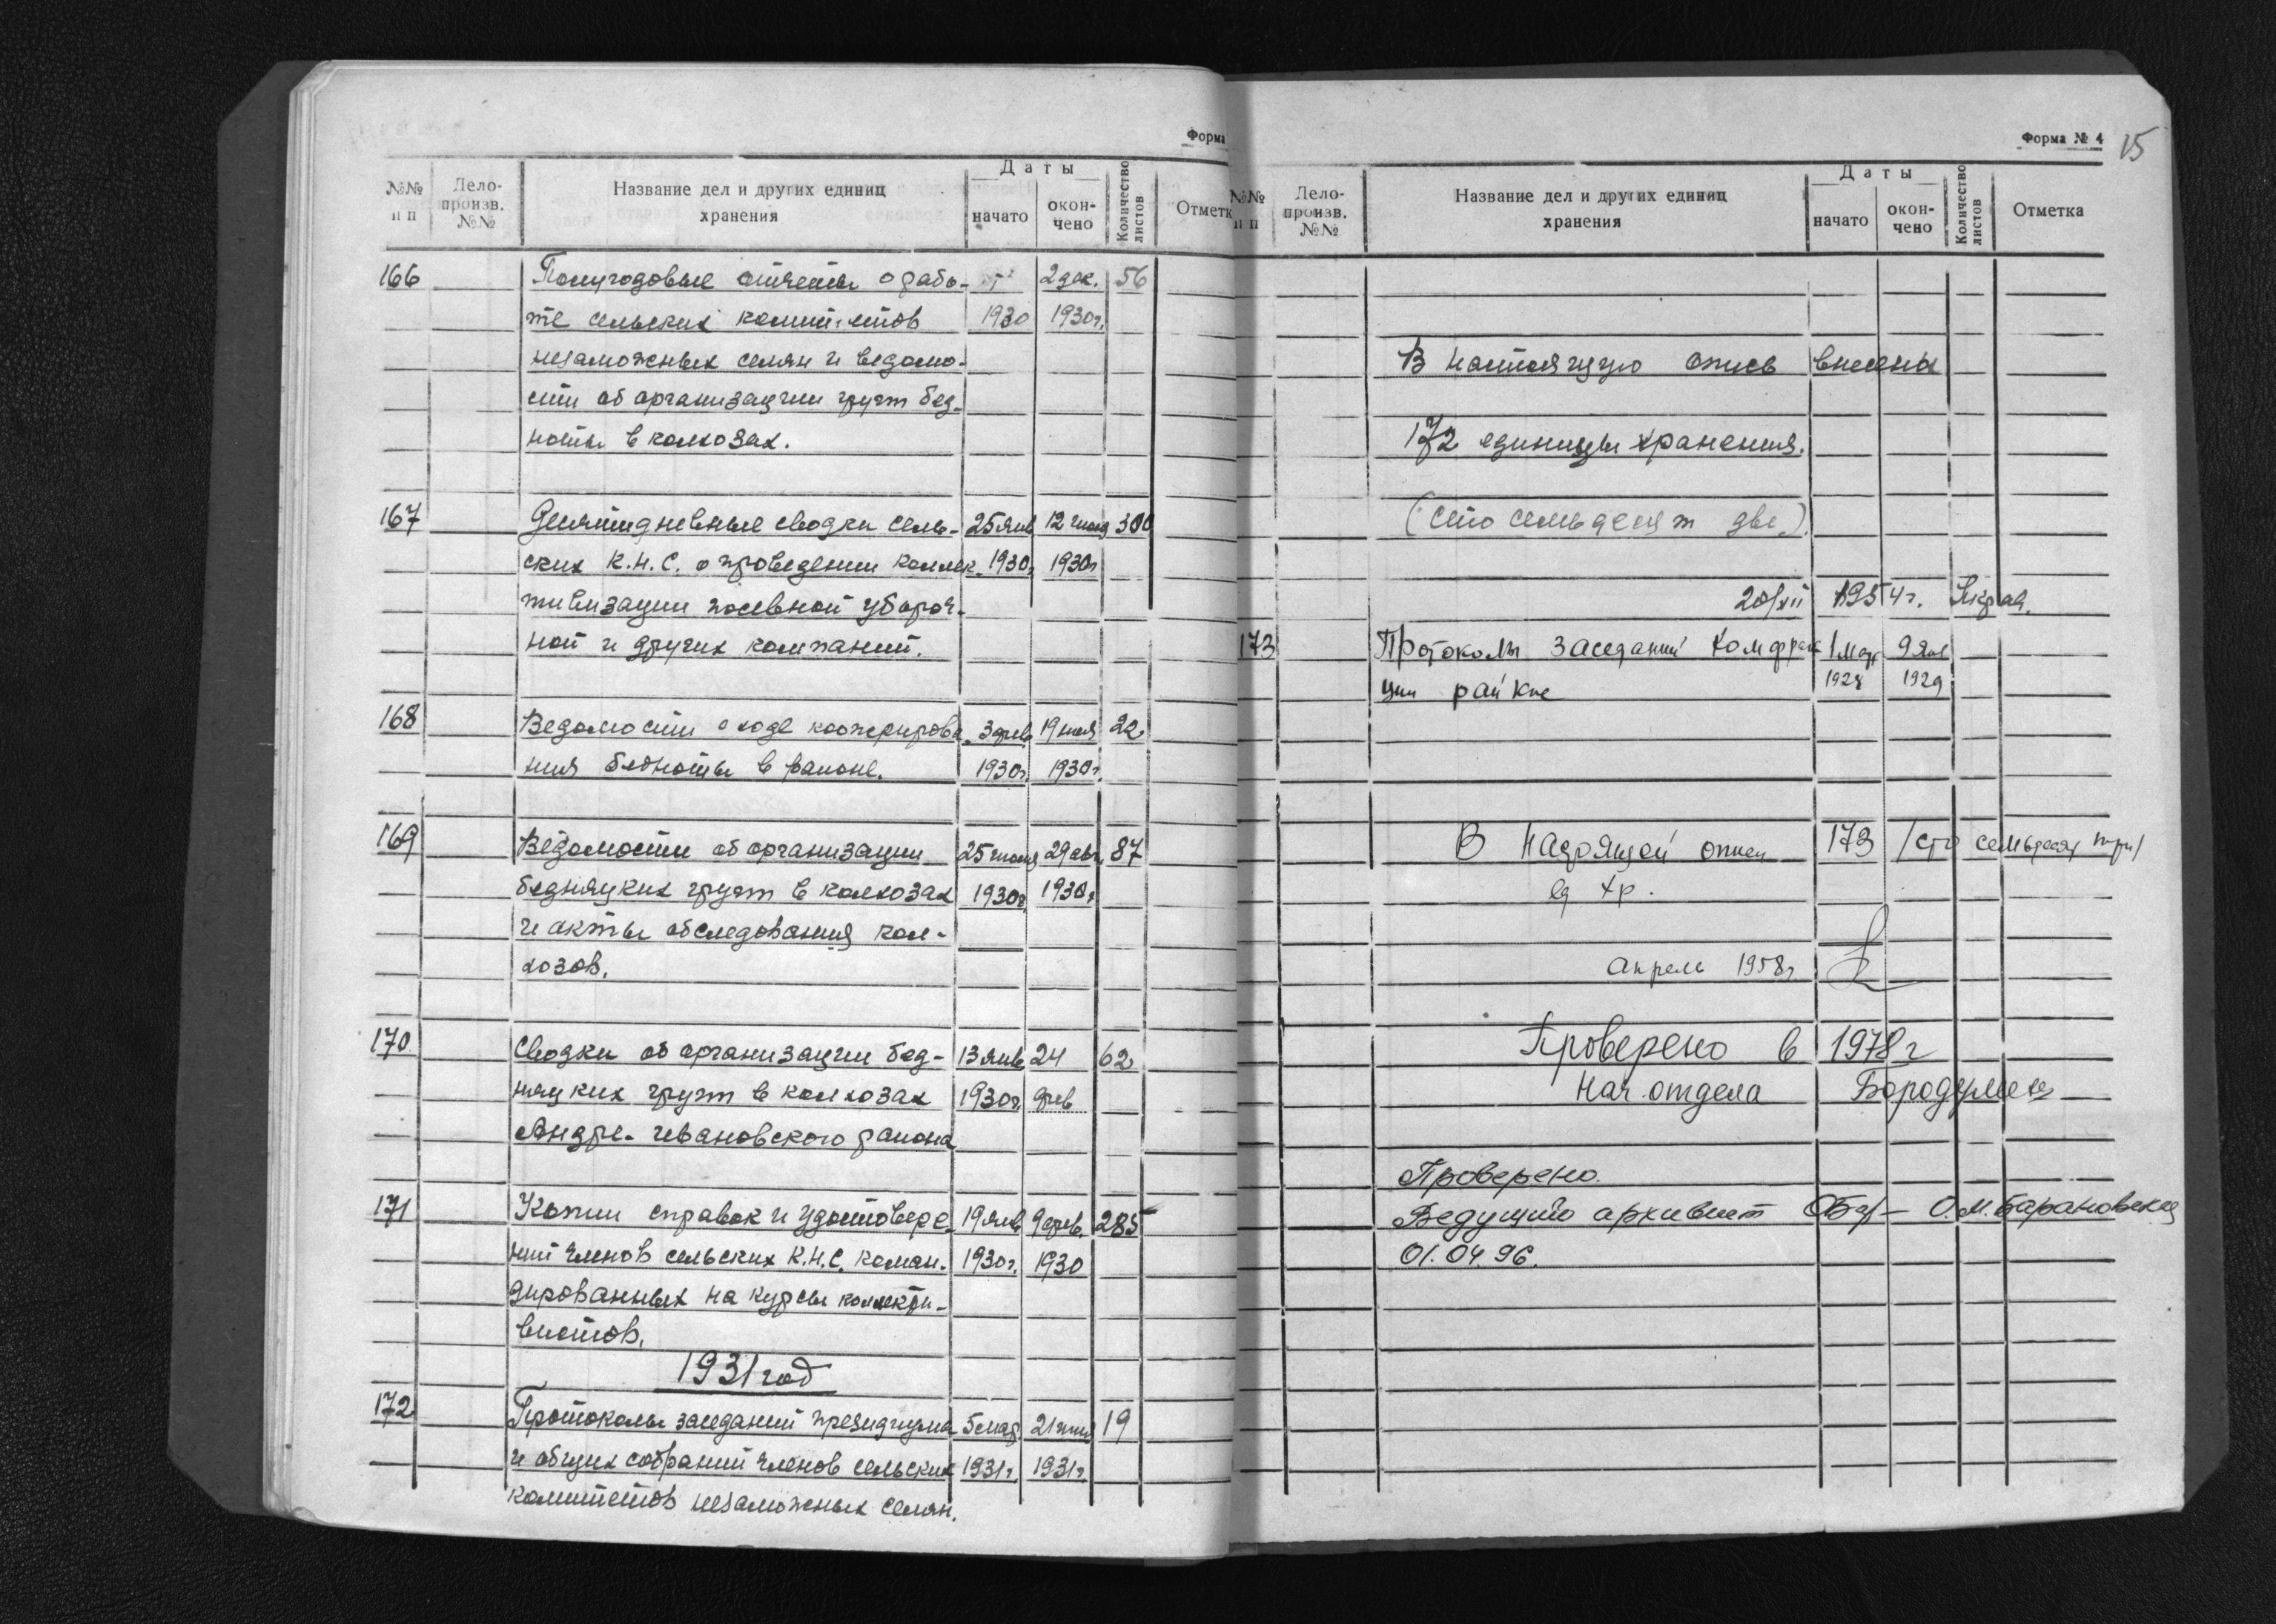 Форма
№№ п п
Дело-произв. №№
Название дел и других единиц хранения
Даты
начато
окон-чено
Количество листов
Отметк
166 Полугодовые отчеты о рабо- 2 дек. 56
те сельских комитетов 1930 1930г.
незаможных селян и ведомо-
сти об организации групп бед-
ноты в колхозах.
167 Десятидневные сводки сель- 25 янв 12 300
ских К.Н.С. о проведении коллек- 1930г. 1930г
тивизации посевной убороч-
ной и других компаний.
168 Ведомости о ходе кооперирова- 3 фев 19 июля 22
ния бедноты в районе. 1930г. 1930г.
169 Ведомости об организации 25 июля 29 авг. 87
бедняцких групп в колхозах 1930г. 1930г
и акты обследования кол-
хозов.
170 Сводки об организации бед- 13 янв 24 62
няцких групп в колхозах 1930г. фев
Андре-Ивановского района
171 Копии справок и удостовере- 19 янв 9 фев. 285
ний членов сельских К.Н.С. коман- 1930г. 1930
дированных на курсы коллекти-
вистов.
1931 год
172 Протоколы заседаний президиума 5 мар 21 июня 19
и общих собраний членов сельских 1931г. 1931г.
комитетов незаможных селян.
Форма № 4 15
№№ п п
Дело-произв. №№
Название дел и других единиц хранения
Даты
начато
окон-чено
Количество листов
Отметка
В настоящую опись внесены
172 единицы хранения.
(сто семьдесят две.)
20/XII 1954г.
173 Протоколы заседаний комфрак 1 мар 9 янв
ции райкнс 1928 1929
В настоящей описи 173 /сто семьдесят три/
ед хр.
Апрель 1958г
Проверено в 1978г
Нач. отдела
Проверено.
Ведущий архивист О.М. Барановская
01.04.96.